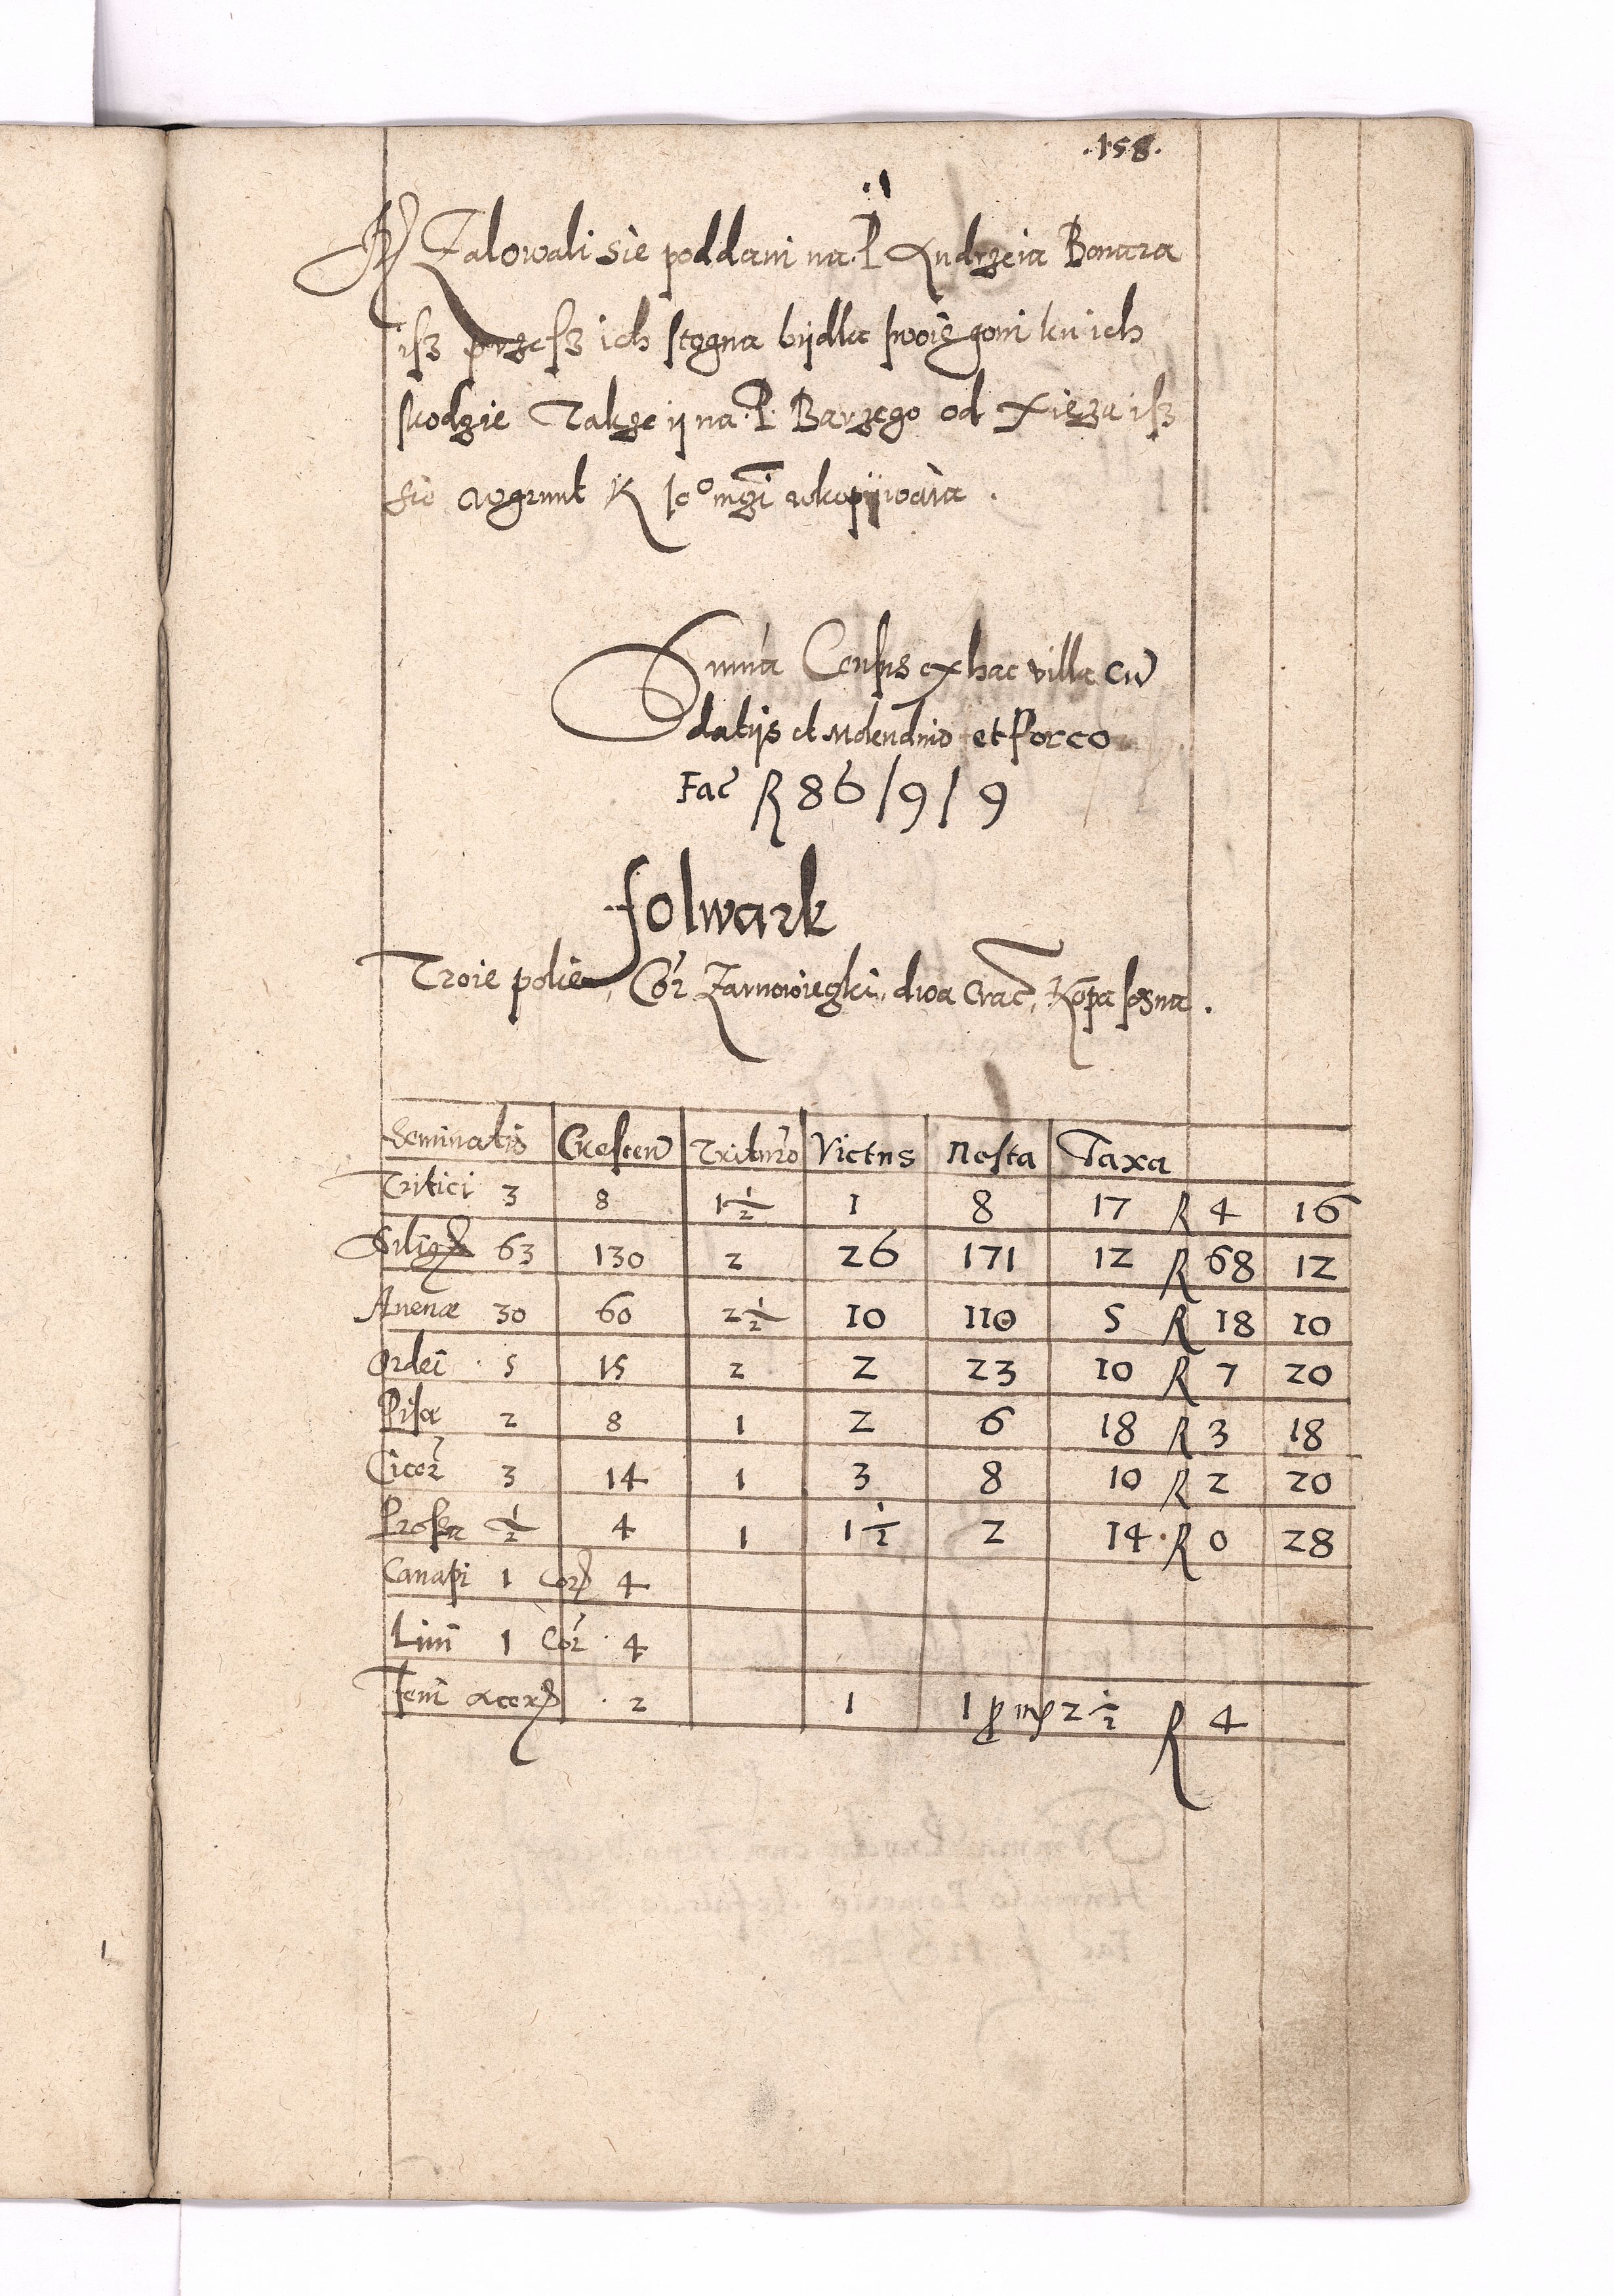 .158.
Zalowali sie poddani na P Andrzeia Bonara
isz przesz ich stogna bydla swoie goni ku ich
skodzie Takze y na P. Barzego od Xieza isz
sie wgrunt K Jeo mczi wkopywaia .
Suma Census ex hac villa cu
datijs et Molendino et Porco
Fac R 86 / 9 / 9
folwark
Troie polie, Cor Zarnowiegki, dwa Crac, Kopa sesna .
Seminatis Crescen Triturao Victus Resta Taxa
Tritici 3 8 1 1/2 1 8 17 R 4 16
Silig 63 130 2 26 171 12 R 68 12
Auenæ 30 60 2 1/2 10 110 5 R 18 10
Ordei 5 15 2 2 23 10 R 7 20
Pisæ 2 8 1 2 6 18 R 3 18
Cicer 3 14 1 3 8 10 R 2 20
Prossa 1/2 4 1 1 1/2 2 14 R 0 28
Canapi 1 Cor 4
Lini 1 Cor 4
Feni acer 2 1 1 p mr 2 1/2 R 4